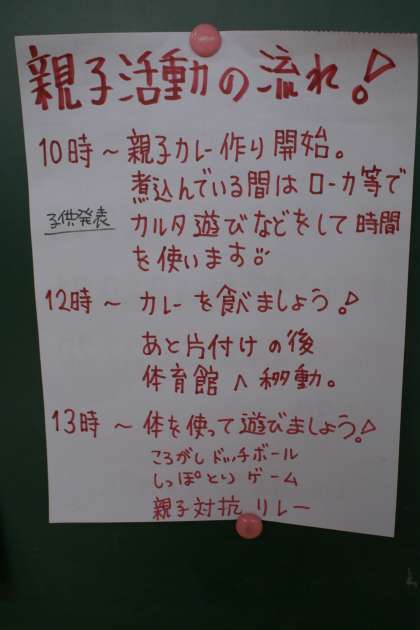 親子活動の流れ!
10時～親子カレー作り開始。
煮込んでいる間はローカ等で
子供発表
カルタ遊びなどをして時間
を使います
12時～カレーを食べましょう!
あと片付けの後
体育館へ移動。
13時～体を使って遊びましょう!
ころがしドッチボール
しっぽとりゲーム
親子対抗リレー